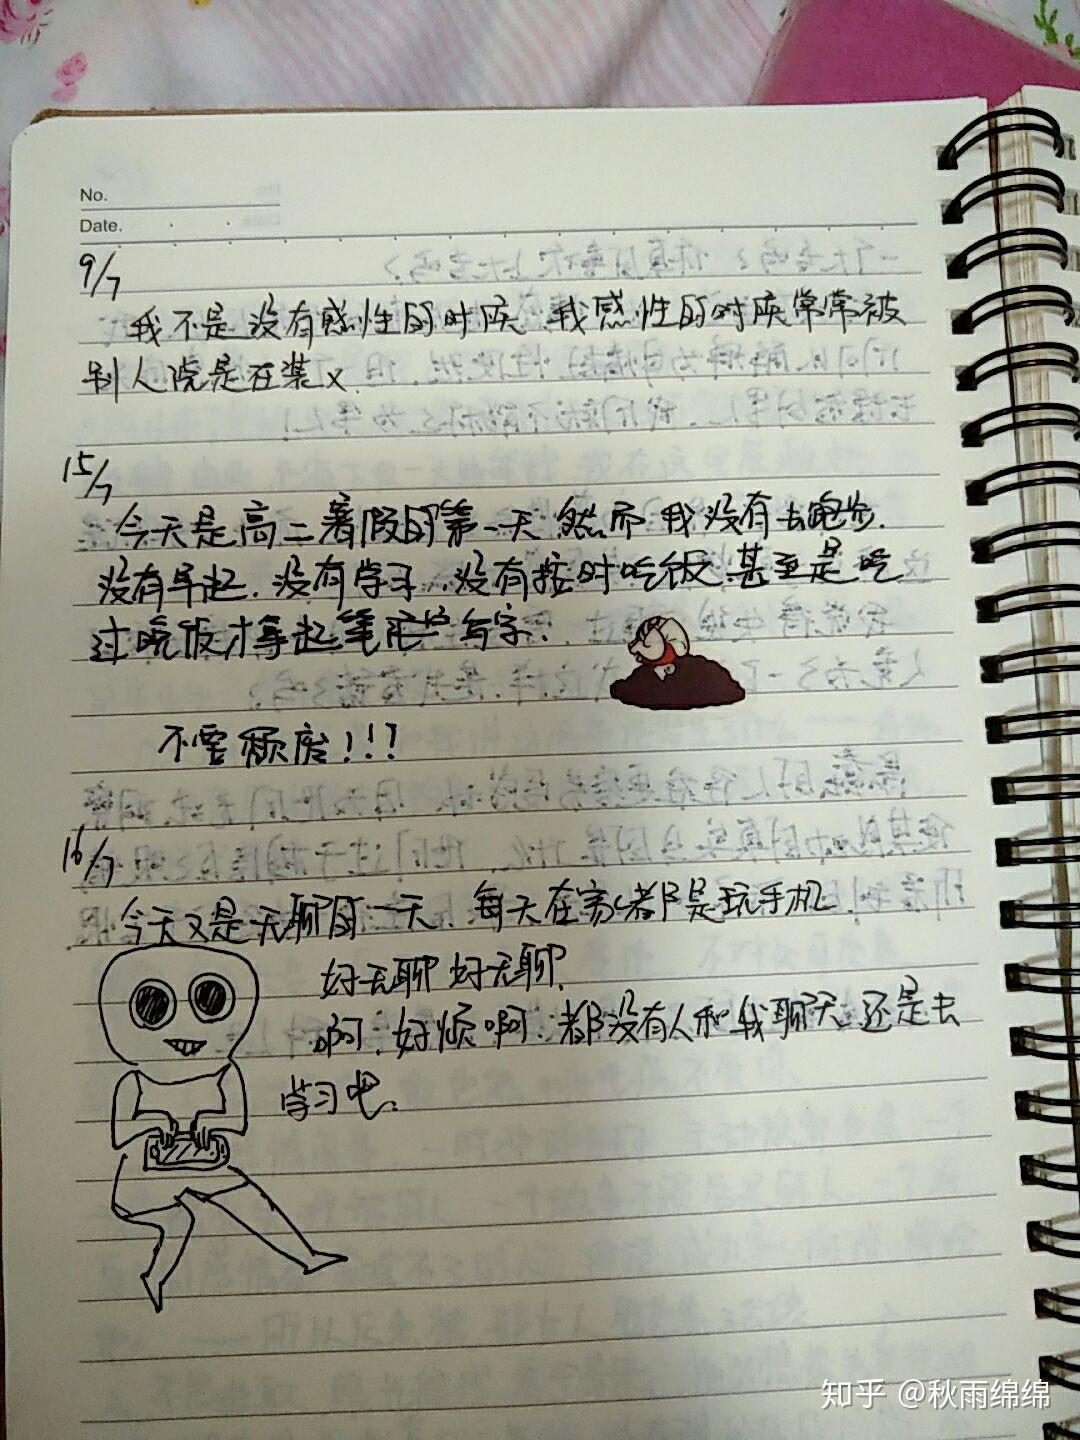 No.
Date.
9/7
我不是没有感性的时候 我感性的时候常常被
别人说是在装x
15/7
今天是高二暑假的第一天 然而 我没有去跑步.
没有早起.没有学习.没有按时吃饭.甚至是吃
过晚饭才拿起笔 写字.
不要颓废!!!
16/7
今天又是无聊的一天. 每天在家都是玩手机
好无聊 好无聊.
啊.好烦啊.都没有人和我聊天.还是去
学习吧.
知乎 @秋雨绵绵